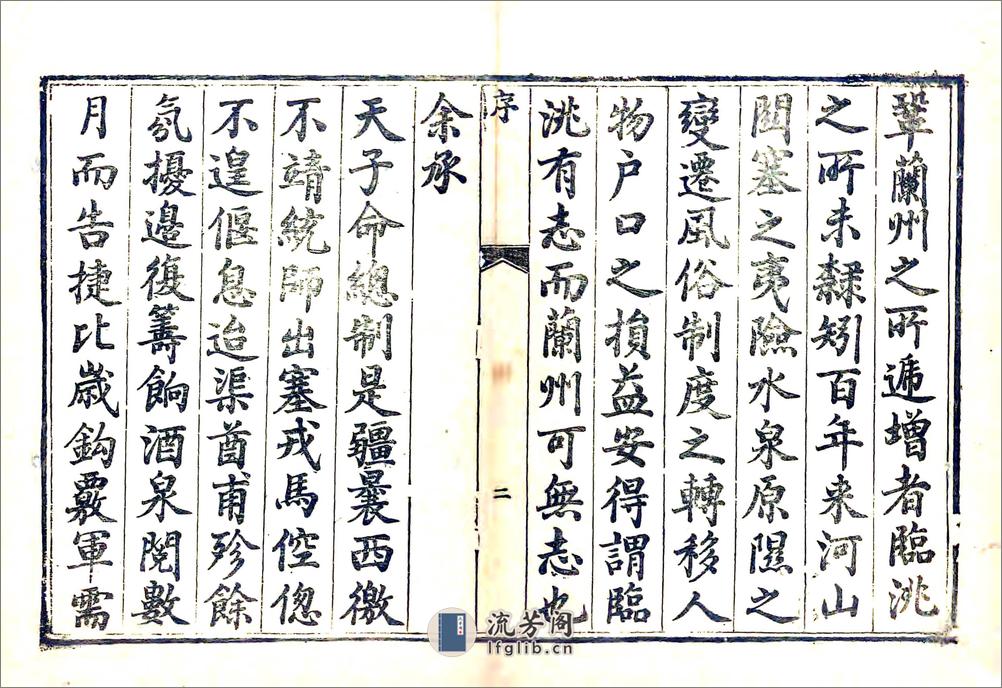 鞏蘭州之所遞增者臨洮
之所未隸矧百年来河山
關塞之夷險水泉原隰之
變遷風俗制度之轉移人
物户口之損益安得謂臨
洮有志而蘭州可無志也
序
二
余承
天子命總制是疆曩西徼
不靖統師出塞戎馬倥偬
不遑偃息迨渠酋甫殄餘
氛擾邊復籌餉酒泉閲數
月而告捷比歲鈎覈軍需
流芳阁
lfglib.cn